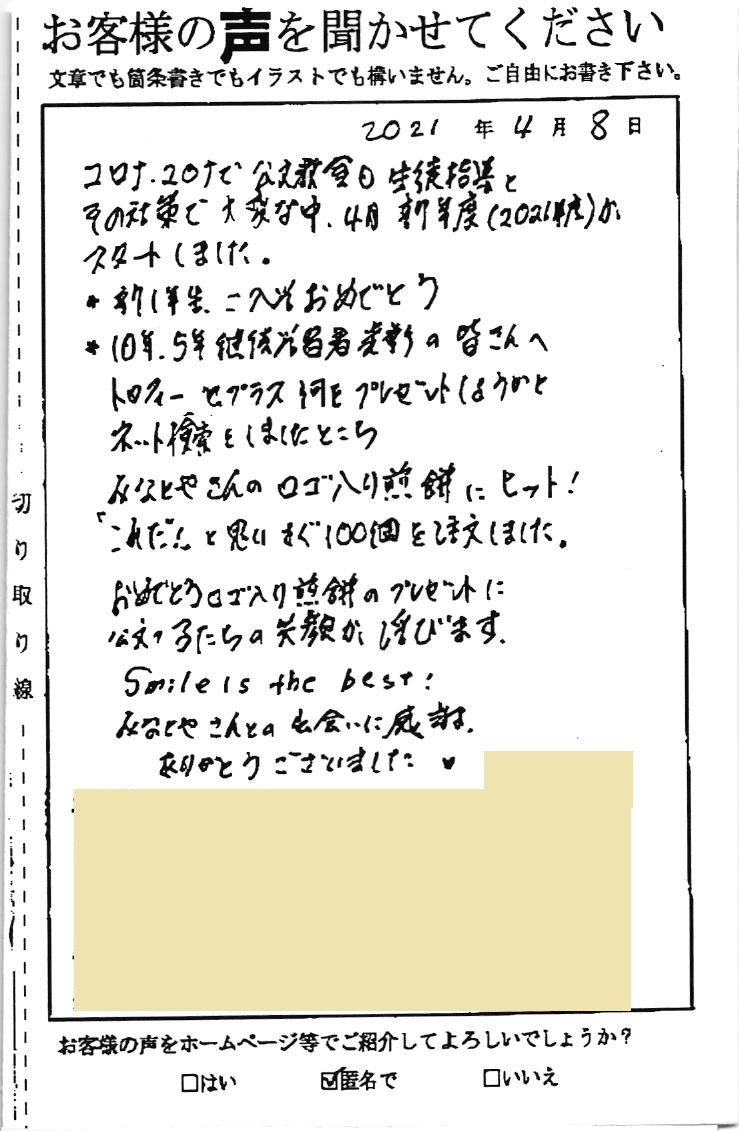 お客様の声を聞かせてください
文章でも箇条書きでもイラストでも構いません。ご自由にお書き下さい。
2021 年 4 月 8 日
コロナ、コロナで 公文教室の 生徒指導と
その対策で 大変な中、4月 新年度(2021年度)が
スタートしました。
* 新1年生 ご入学おめでとう
* 10年、5年継続学習者表彰の 皆さんへ
トロフィーとプラス何をプレゼントしようかと
ネット検索をしましたところ
みなとやさんの ロゴ入り煎餅に ヒット!
「これだ!」と思いすぐ100個を注文しました。
おめでとうロゴ入り煎餅のプレゼントに
公文っ子たちの笑顔が浮びます。
Smile is the best!
みなとやさんとの出会いに感謝。
ありがとうございました ♥
切り取り線
お客様の声をホームページ等でご紹介してよろしいでしょうか?
□はい ☑匿名で □いいえ